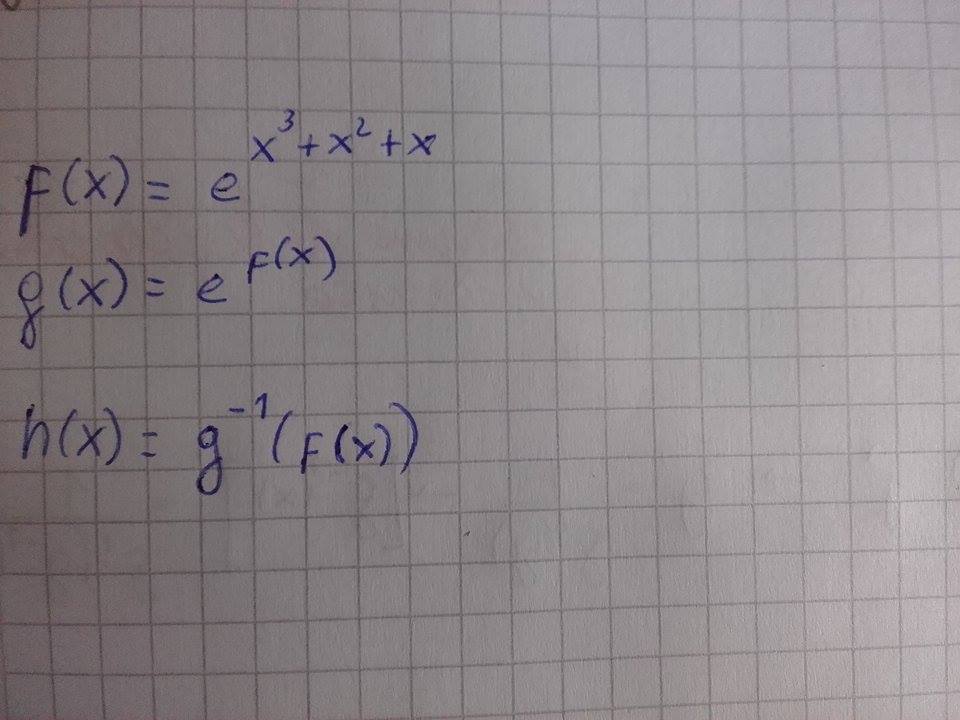 F(x) = e^{x^3+x^2+x}
g(x) = e^{F(x)}
h(x) = g^{-1}(F(x))